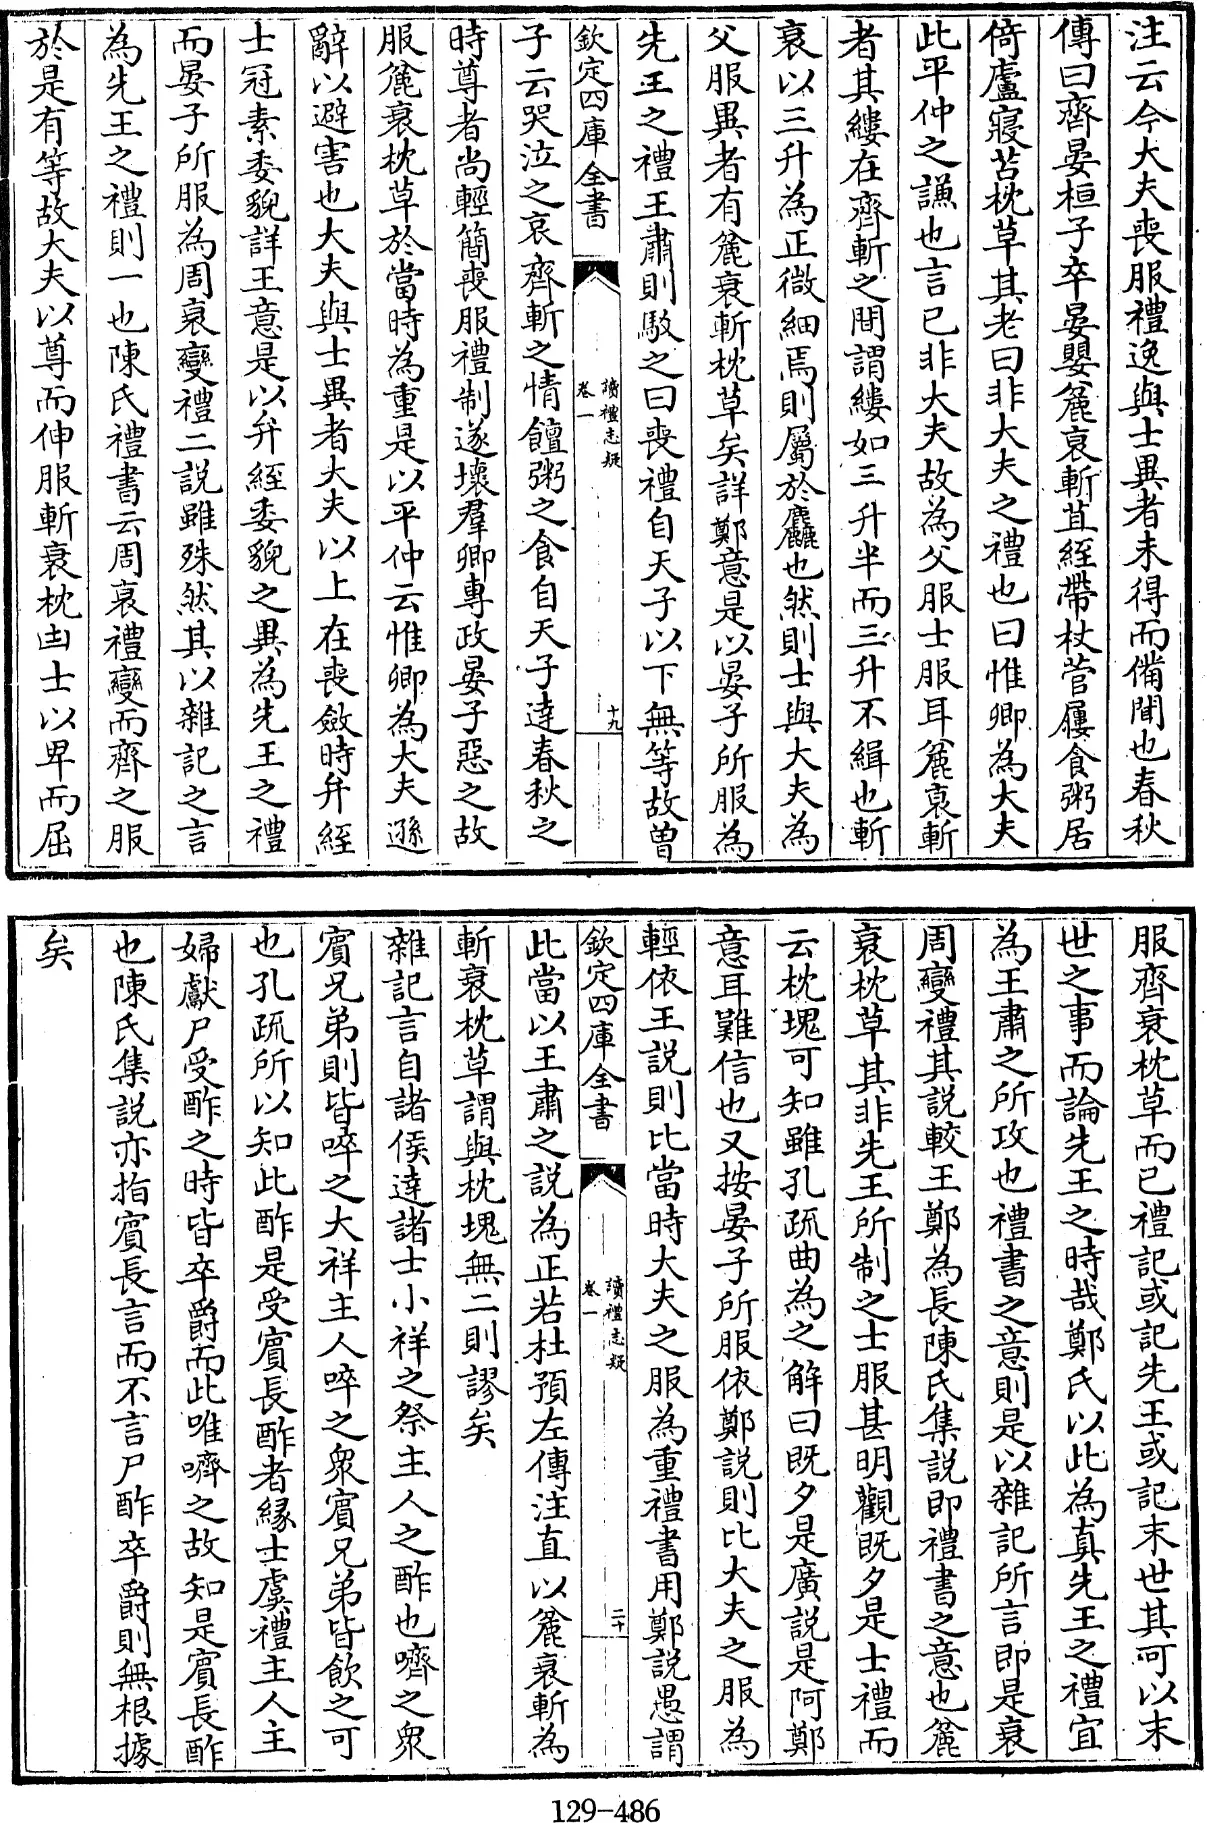 注云今大夫喪服禮逸與士異者未得而備聞也春秋
傳曰齊晏桓子卒晏嬰麄衰斬苴絰帶杖菅屨食粥居
倚廬寢苫枕草其老曰非大夫之禮也曰惟卿為大夫
此平仲之謙也言已非大夫故為父服士服耳麄衰斬
者其縷在齊斬之間謂縷如三升半而三升不緝也斬
衰以三升為正微細焉則屬於麤也然則士與大夫為
父服異者有麄衰斬枕草矣詳鄭意是以晏子所服為
先王之禮王肅則駁之曰喪禮自天子以下無等故曽
欽定四庫全書
讀禮志疑
卷一
十九
子云哭泣之哀齊斬之情饘粥之食自天子達春秋之
時尊者尚輕簡喪服禮制遂壞羣卿專政晏子惡之故
服麄衰枕草於當時為重是以平仲云惟卿為大夫遜
辭以避害也大夫與士異者大夫以上在喪斂時弁絰
士冠素委貌詳王意是以弁絰委貌之異為先王之禮
而晏子所服為周衰變禮二説雖殊然其以雜記之言
為先王之禮則一也陳氏禮書云周衰禮變而齊之服
於是有等故大夫以尊而伸服斬衰枕凷士以卑而屈
服齊衰枕草而已禮記或記先王或記末世其可以末
世之事而論先王之時哉鄭氏以此為真先王之禮宜
為王肅之所攻也禮書之意則是以雜記所言即是衰
周變禮其説較王鄭為長陳氏集説即禮書之意也麄
衰枕草其非先王所制之士服甚明觀既夕是士禮而
云枕塊可知雖孔疏曲為之解曰既夕是廣説是阿鄭
意耳難信也又按晏子所服依鄭説則比大夫之服為
輕依王説則比當時大夫之服為重禮書用鄭説愚謂
欽定四庫全書
讀禮志疑
卷一
二十
此當以王肅之説為正若杜預左傳注直以麄衰斬為
斬衰枕草謂與枕塊無二則謬矣
雜記言自諸侯達諸士小祥之祭主人之酢也嚌之衆
賔兄弟則皆啐之大祥主人啐之衆賔兄弟皆飲之可
也孔疏所以知此酢是受賔長酢者縁士虞禮主人主
婦獻尸受酢之時皆卒爵而此唯嚌之故知是賔長酢
也陳氏集説亦指賔長言而不言尸酢卒爵則無根據
矣
129-486